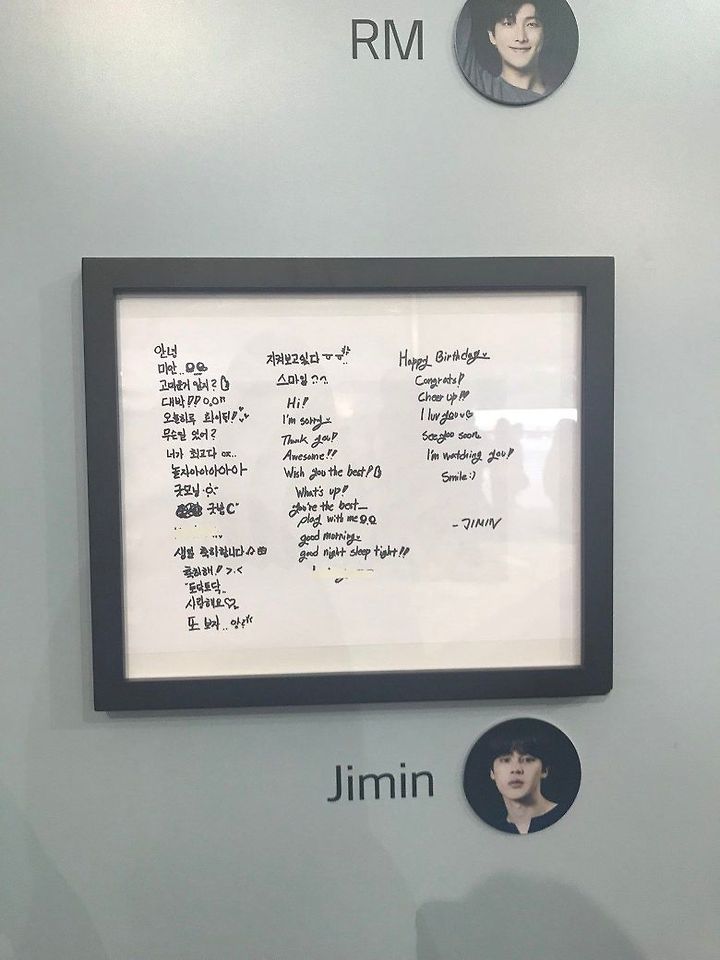 RM
안녕
미안..
고마운거 알지?
대박!! o.o!!
오늘하루 화이팅!
무슨일 있어?
너가 최고다 ox..
놀자아아아아아
굿모닝
굿밤
생일 축하합니다
축하해! >.<
토닥토닥..
사랑해요♡
또 보자.. 앙?
지켜보고있다 ㅜㅜ
스마일 ^^
Hi!
I'm sorry
Thank you!
Awesome!!
Wish you the best!
What's up!
you're the best
play with me
good morning
good night sleep tight!!
Happy Birthday
Congrats!
Cheer up!!
I luv you
See you soon
I'm watching you!
Smile :)
-JIMIN
Jimin